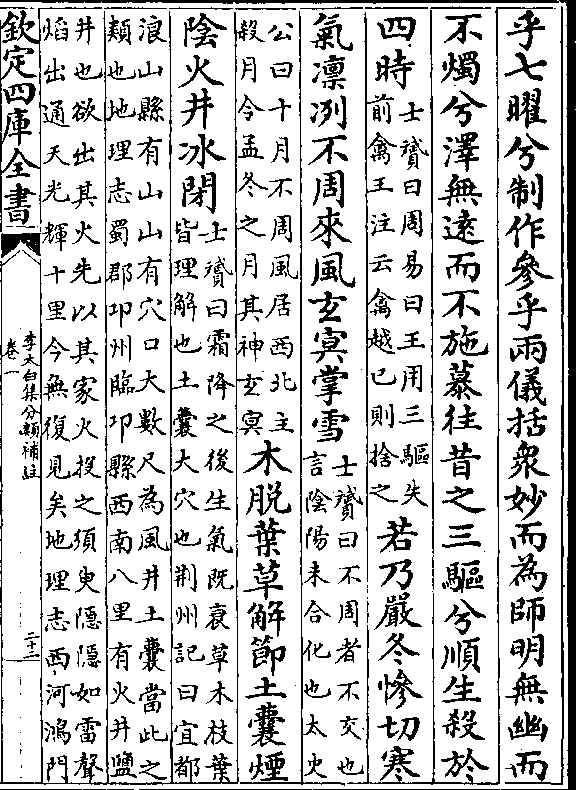 乎七曜兮制作參乎兩儀括衆妙而為師明無幽而
不燭兮澤無遠而不施慕往昔之三驅兮順生殺於
四時
士贇曰周易曰王用三驅失
前禽王注云禽越已則捨之
若乃嚴冬慘切寒
氣凛冽不周來風玄冥掌雪
士贇曰不周者不交也
言陰陽未合化也太史
公曰十月不周風居西北主
殺月令孟冬之月其神玄冥
木脱葉草解節土囊煙
陰火井冰閉
士贇曰霜降之後生氣既衰草木枝葉
皆理解也土囊大穴也荆州記曰宜都
浪山縣有山山有穴口大數尺為風井土囊當此之
類也地理志蜀郡卭州臨卭縣西南八里有火井鹽
井也欲出其火先以其家火投之須臾隱隱如雷聲
焰出通天光輝十里今無復見矣地理志西河鴻門
欽定四庫全書
李太白集分類補註
卷一
二十二